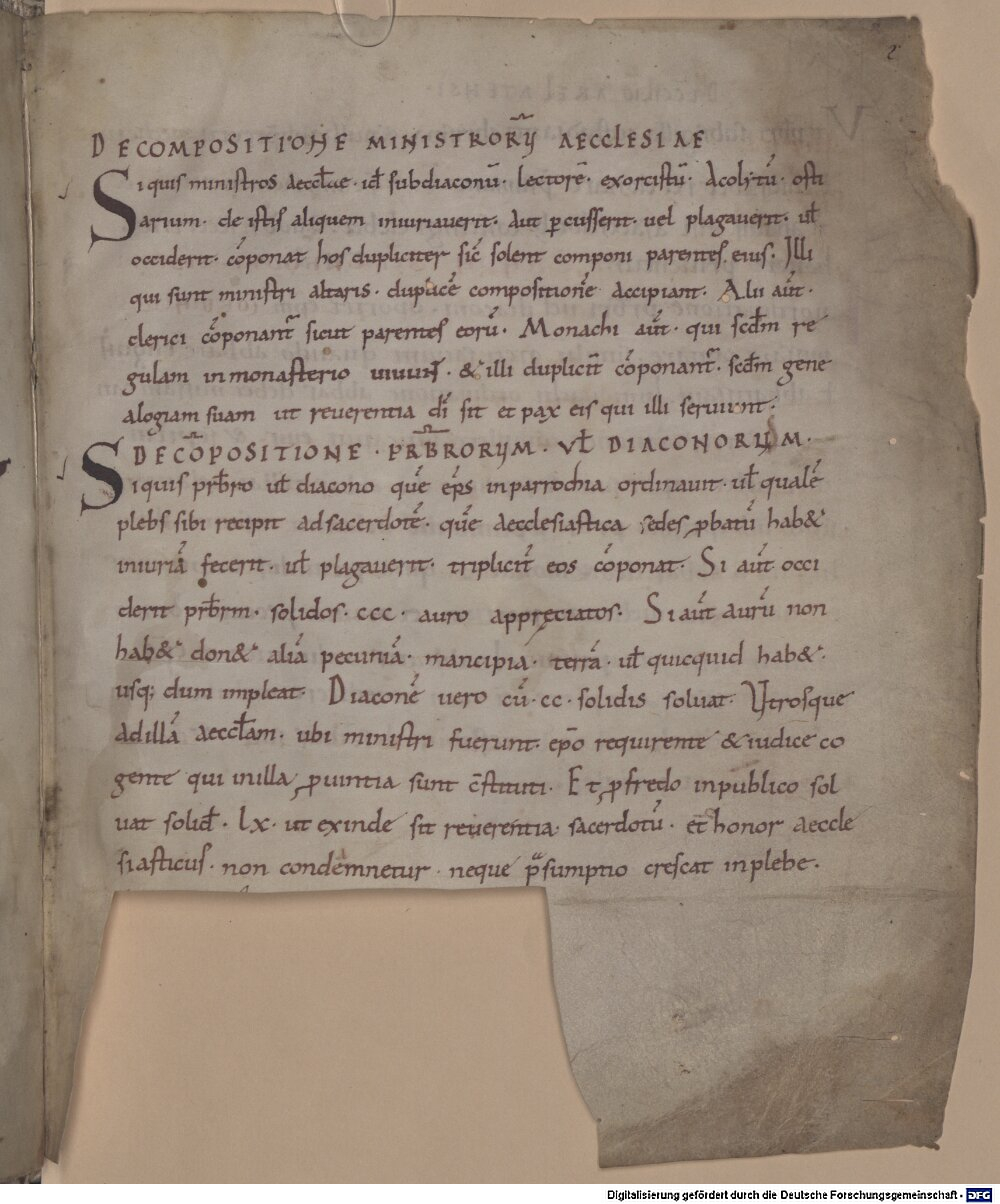 2
DE COMPOSITIONE MINISTRORŪ AECCLESIAE
Si quis ministros aeccłae · id̄ subdiaconū · lectorē · exorcistū · Acolytū · osti
arium · de istis aliquem iniuriaverit · Aut ꝑcusserit · uel plagaverit · uł
occiderit · cōponat hos dupliciter sic̄ solent componi parentes eius · Illi
qui sunt ministri altaris · duplicē compositionē accipiant · Alii aūt ·
clerici cōponant᷑ sicut parentes eorū · Monachi aūt · qui scd̄m re
gulam in monasterio uiuun̄t · & illi duplicit̄ cōponant᷑ · scd̄m gene
alogiam suam ut reverentia dī sit et pax eis qui illi serviunt ·
DE CŌPOSITIONE · PR̄BRORUM · VŁ DIACONORUM ·
Si quis pr̄bro uł diacono quē ep̄s in parrochia ordinauit · uł qualē
plebs sibi recipit ad sacerdotē · quē aecclesiastica sedes ꝓbatū hab&
iniuriā fecerit · uł plagaverit · triplicit̄ eos cōponat · Si aūt occi
derit pr̄brm · solidos · ccc · auro appreciatos · Si aūt aurū non
hab& · don& · aliā pecuniā · mancipia · terrā · uł quicquid hab& ·
usq; dum impleat · Diaconē vero cū · cc · solidis soluat · Utrosque
ad illā aeccłam · ubi ministri fuerunt · ep̄o requirente & iudice co
gente qui in illa ꝓuintia sunt c̄stituti · Et ꝓ fredo in publico sol
uat solid̄ · lx · ut exinde sit reuerentia sacerdotū · et honor aeccle
siasticus · non condemnetur · neque p̄sumptio crescat in plebe ·
Digitalisierung gefördert durch die Deutsche Forschungsgemeinschaft - DFG